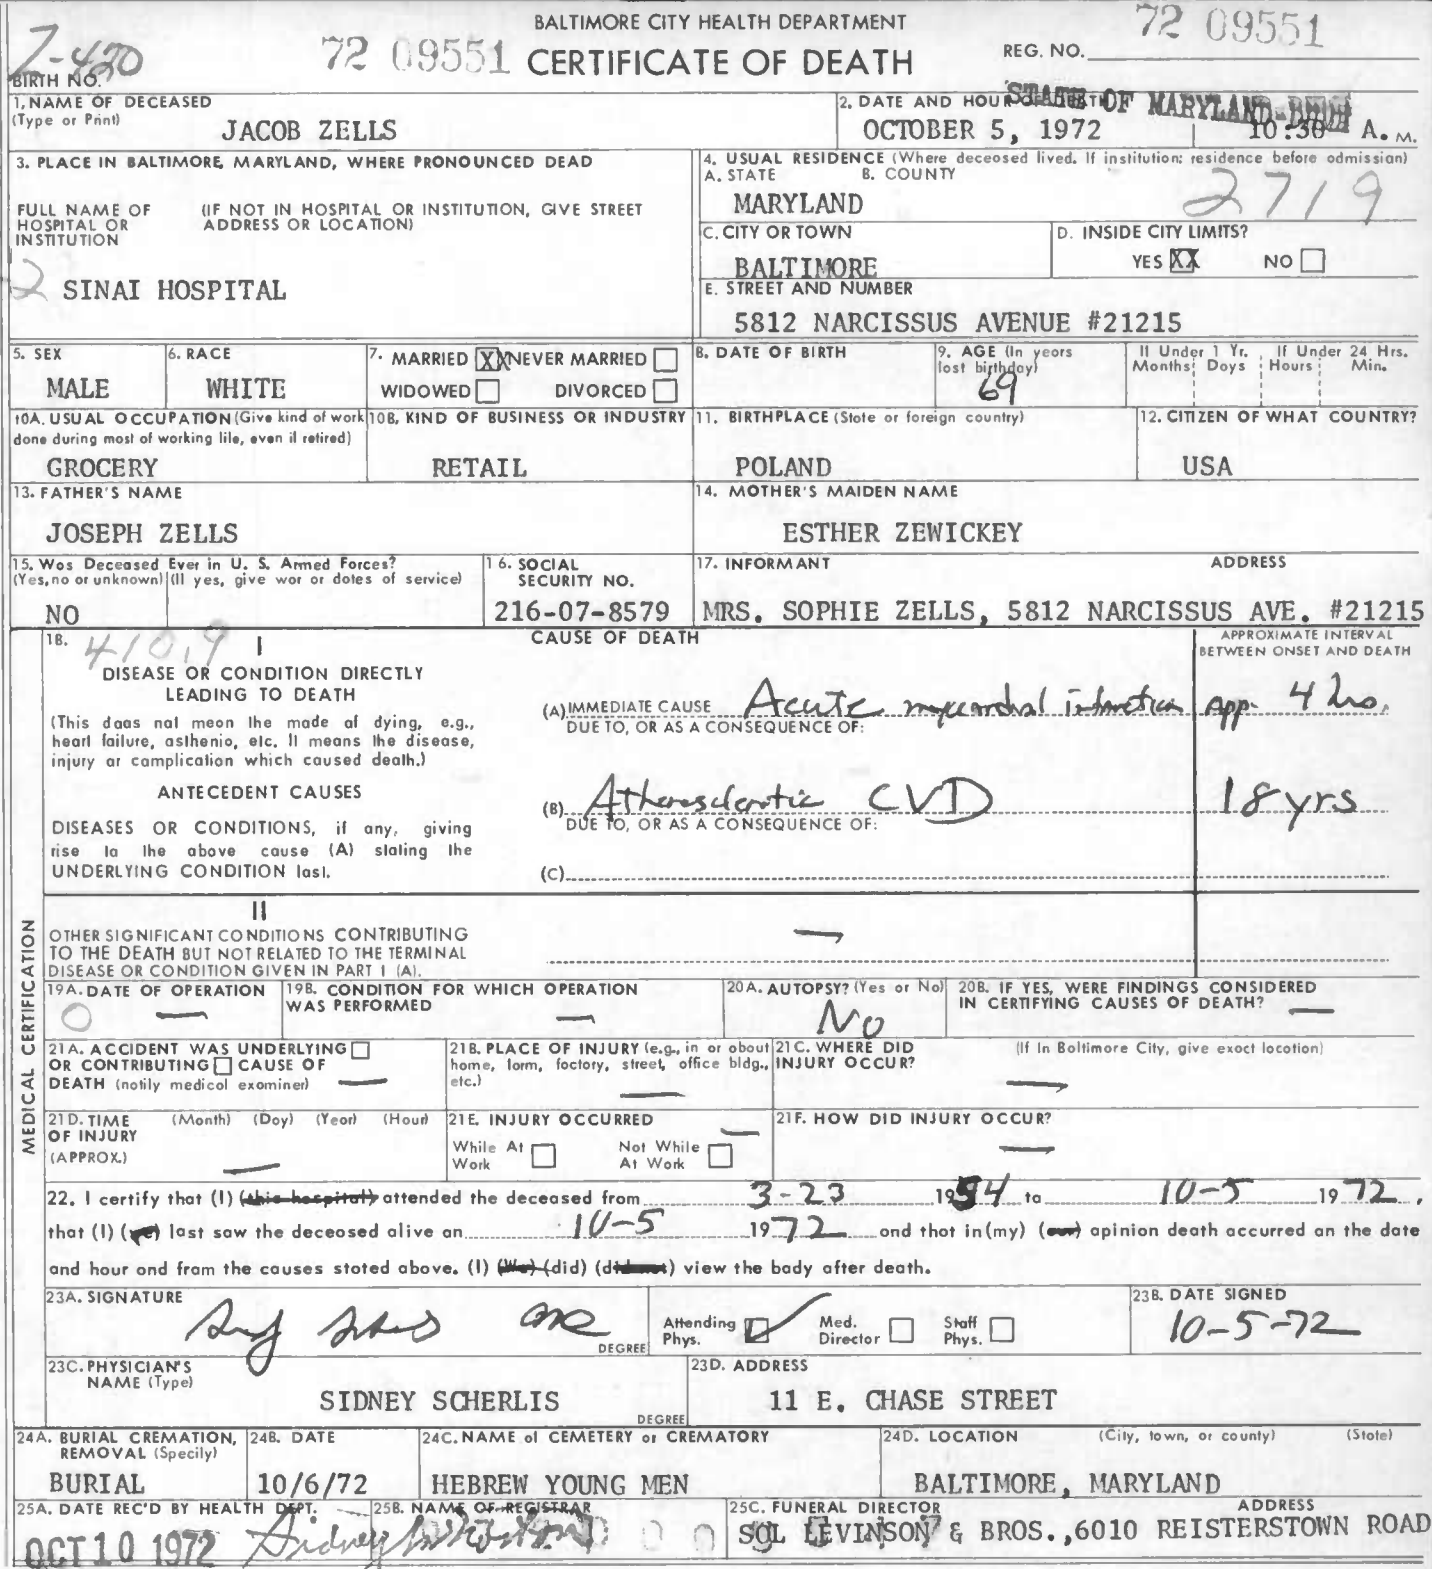 BALTIMORE CITY HEALTH DEPARTMENT
72 09551 CERTIFICATE OF DEATH REG. NO. 72 09551
Z-420
BIRTH NO.
STATE OF MARYLAND-BHDH
1. NAME OF DECEASED
(Type or Print)
JACOB ZELLS
2. DATE AND HOUR OF DEATH
OCTOBER 5, 1972 10:30 A. M.
3. PLACE IN BALTIMORE, MARYLAND, WHERE PRONOUNCED DEAD
FULL NAME OF HOSPITAL OR INSTITUTION
(IF NOT IN HOSPITAL OR INSTITUTION, GIVE STREET ADDRESS OR LOCATION)
2 SINAI HOSPITAL
4. USUAL RESIDENCE (Where deceased lived. If institution: residence before admission)
A. STATE B. COUNTY
MARYLAND 2719
C. CITY OR TOWN
BALTIMORE
D. INSIDE CITY LIMITS?
YES XX NO
E. STREET AND NUMBER
5812 NARCISSUS AVENUE #21215
5. SEX
MALE
6. RACE
WHITE
7. MARRIED XX NEVER MARRIED
WIDOWED DIVORCED
8. DATE OF BIRTH
9. AGE (In years last birthday)
69
If Under 1 Yr. If Under 24 Hrs.
Months Days Hours Min.
10A. USUAL OCCUPATION (Give kind of work done during most of working life, even if retired)
GROCERY
10B. KIND OF BUSINESS OR INDUSTRY
RETAIL
11. BIRTHPLACE (State or foreign country)
POLAND
12. CITIZEN OF WHAT COUNTRY?
USA
13. FATHER'S NAME
JOSEPH ZELLS
14. MOTHER'S MAIDEN NAME
ESTHER ZEWICKEY
15. Was Deceased Ever in U. S. Armed Forces?
(Yes, no or unknown) (If yes, give war or dates of service)
NO
16. SOCIAL SECURITY NO.
216-07-8579
17. INFORMANT ADDRESS
MRS. SOPHIE ZELLS, 5812 NARCISSUS AVE. #21215
MEDICAL CERTIFICATION
18. 410.9 CAUSE OF DEATH
APPROXIMATE INTERVAL BETWEEN ONSET AND DEATH
I
DISEASE OR CONDITION DIRECTLY LEADING TO DEATH
(This does not mean the mode of dying, e.g., heart failure, asthenia, etc. It means the disease, injury or complication which caused death.)
(A) IMMEDIATE CAUSE Acute myocardial infarction App. 4 hrs.
DUE TO, OR AS A CONSEQUENCE OF:
ANTECEDENT CAUSES
DISEASES OR CONDITIONS, if any, giving rise to the above cause (A) stating the UNDERLYING CONDITION last.
(B) Atherosclerotic CVD 18 yrs
DUE TO, OR AS A CONSEQUENCE OF:
(C)
II
OTHER SIGNIFICANT CONDITIONS CONTRIBUTING TO THE DEATH BUT NOT RELATED TO THE TERMINAL DISEASE OR CONDITION GIVEN IN PART I (A).
—
19A. DATE OF OPERATION
0 —
19B. CONDITION FOR WHICH OPERATION WAS PERFORMED
—
20A. AUTOPSY? (Yes or No)
No
20B. IF YES, WERE FINDINGS CONSIDERED IN CERTIFYING CAUSES OF DEATH? —
21A. ACCIDENT WAS UNDERLYING OR CONTRIBUTING CAUSE OF DEATH (notify medical examiner) —
21B. PLACE OF INJURY (e.g., in or about home, farm, factory, street, office bldg., etc.) —
21C. WHERE DID INJURY OCCUR? (If In Baltimore City, give exact location)
—
21D. TIME OF INJURY (APPROX.) (Month) (Day) (Year) (Hour)
—
21E. INJURY OCCURRED —
While At Work Not While At Work
21F. HOW DID INJURY OCCUR?
—
22. I certify that (I) (this hospital) attended the deceased from 3-23 1954 to 10-5 1972,
that (I) (we) last saw the deceased alive on 10-5 1972 and that in (my) (our) opinion death occurred on the date
and hour and from the causes stated above. (I) (We) (did) (did not) view the body after death.
23A. SIGNATURE
DEGREE
Attending Phys. Med. Director Staff Phys.
23B. DATE SIGNED
10-5-72
23C. PHYSICIAN'S NAME (Type)
SIDNEY SCHERLIS
DEGREE
23D. ADDRESS
11 E. CHASE STREET
24A. BURIAL CREMATION, REMOVAL (Specify)
BURIAL
24B. DATE
10/6/72
24C. NAME of CEMETERY or CREMATORY
HEBREW YOUNG MEN
24D. LOCATION (City, town, or county) (State)
BALTIMORE, MARYLAND
25A. DATE REC'D BY HEALTH DEPT.
OCT 10 1972
25B. NAME OF REGISTRAR
Sidney
25C. FUNERAL DIRECTOR ADDRESS
SOL LEVINSON & BROS., 6010 REISTERSTOWN ROAD